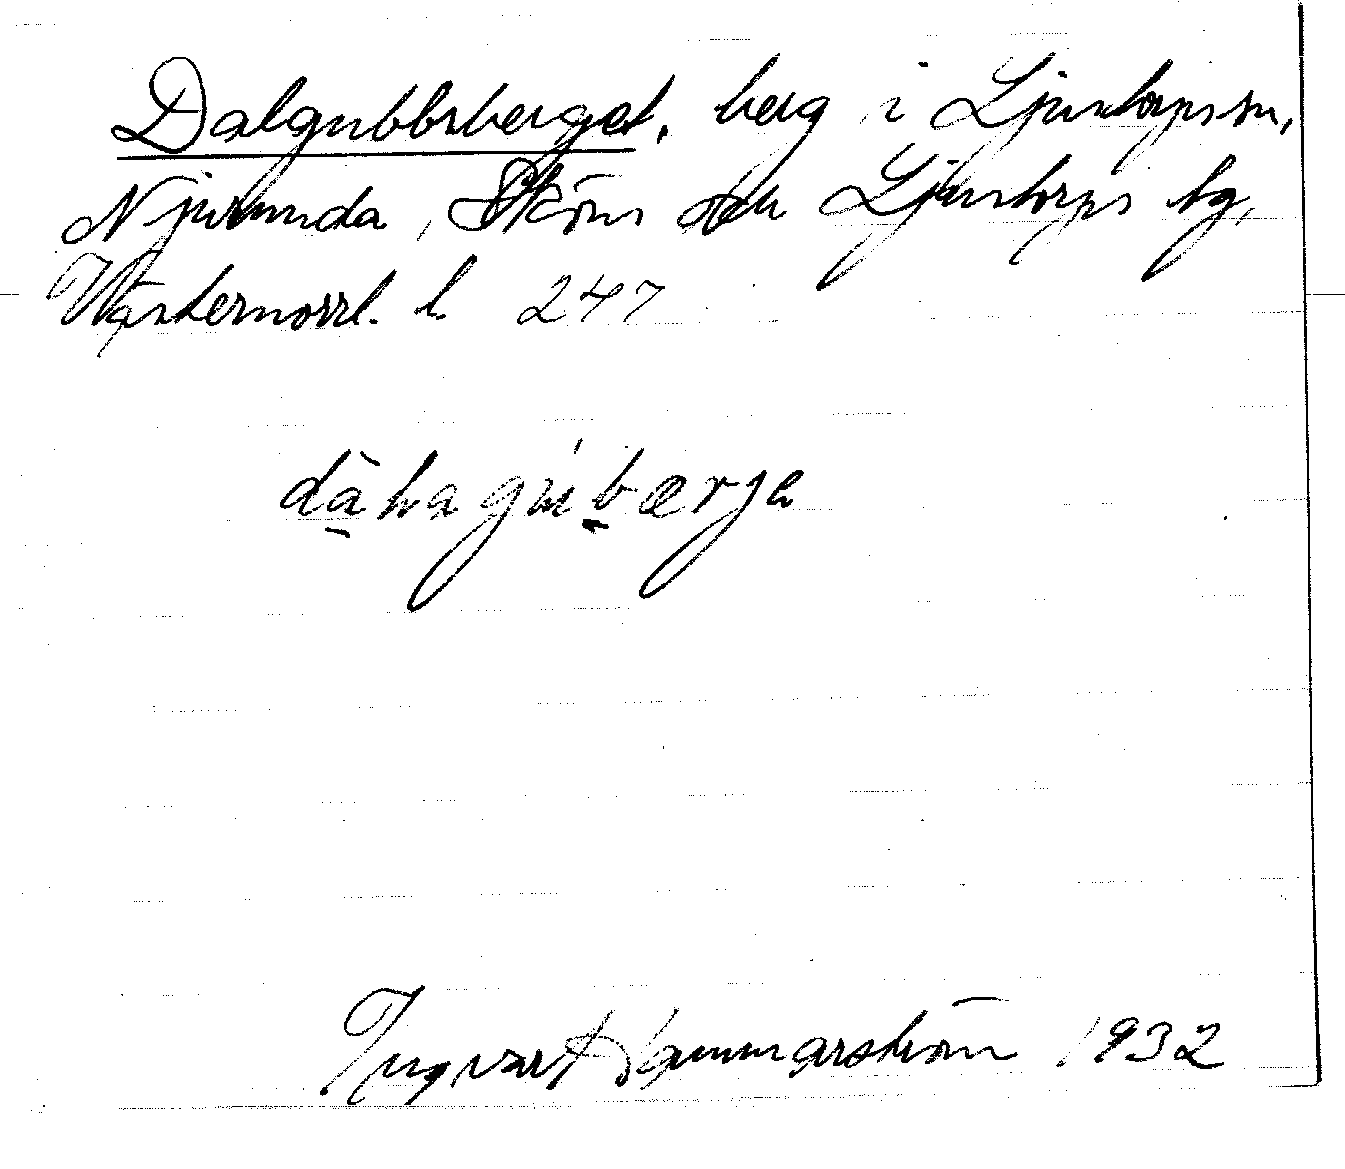 Dalgubbsberget, berg i Ljustorps sn,
Njurunda, Sköns och Ljustorps tg,
Västernorrl. l. 247
dàhagúbærje
Ingvar Hammarström 1932